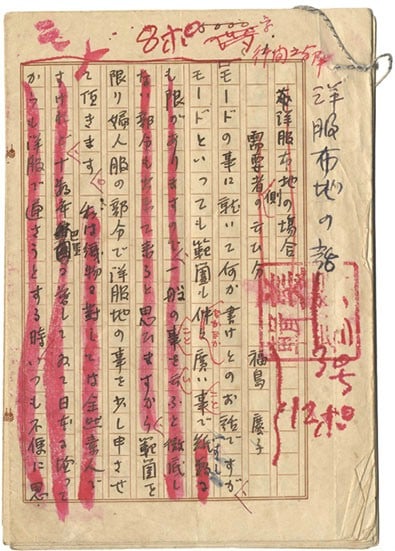 洋服布地の話
8ポ
3号
12ポ
洋服布地の場合
需要者側の云ひ分
福島慶子
モードの事に就いて何か書けとのお話ですが
モードといつても範囲も仲々廣い事で紙数に
も限がありますので、一般の事を云ふと徹底し
ない部分も出て来ると思ひますから範囲を
限り婦人服の部分で洋服地の事を少し申させ
て頂きます。私は織物に対しては全然素人で
すけれど十数年巴里に暮してゐて日本に
からも洋服で通さうとする時いつも不便に思